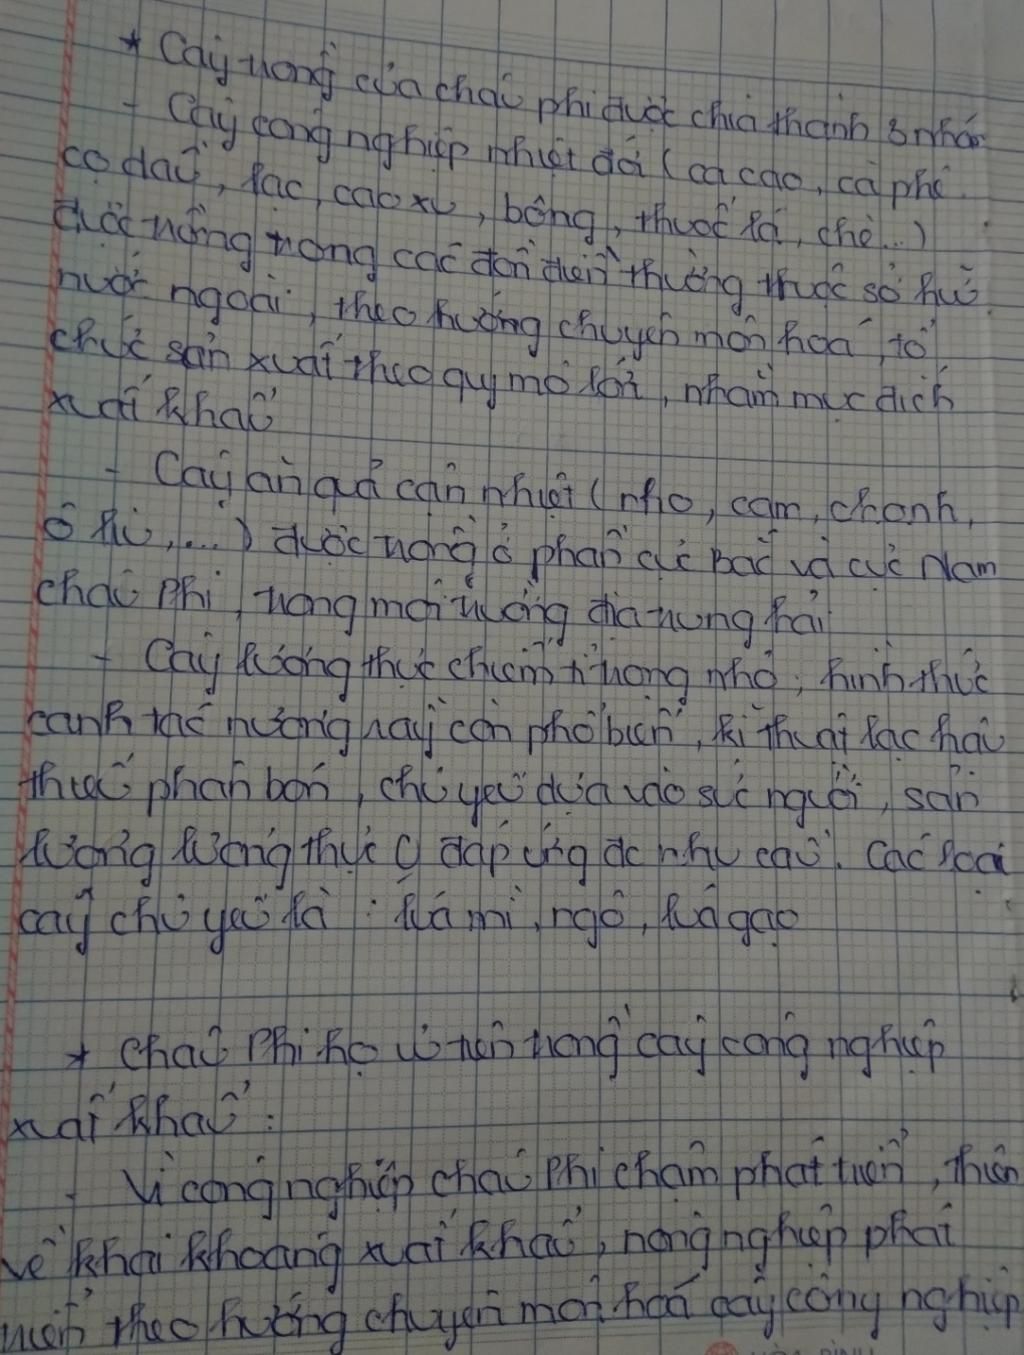 * Cây trồng của châu phi được chia thành 3 nhóm
- Cây công nghiệp nhiệt đới (ca cao, cà phê
cọ dầu, lạc, cao xu, bông, thuốc lá, chè...)
được trồng trong các đồn điền thường thuộc sở hữu
nước ngoài, theo hướng chuyên môn hoá, tổ
chức sản xuất theo quy mô lớn, nhằm mục đích
xuất khẩu
- Cây ăn quả cận nhiệt (nho, cam, chanh,
ô liu,...) được trồng ở phần cực bắc và cực Nam
châu Phi, trong môi trường địa trung hải
- Cây lương thực chiếm tỉ trọng nhỏ, hình thức
canh tác nương rẫy còn phổ biến, kĩ thuật lạc hậu
thiếu phân bón, chủ yếu dựa vào sức người, sản
lượng lương thực đáp ứng đc nhu cầu. Các loại
cây chủ yếu là : lúa mì, ngô, lúa gạo
* Châu Phi họ ưu tiên trồng cây công nghiệp
xuất khẩu :
- Vì công nghiệp châu Phi chậm phát triển, thiên
về khai khoáng xuất khẩu, nông nghiệp phát
triển theo hướng chuyên môn hoá cây công nghiệp